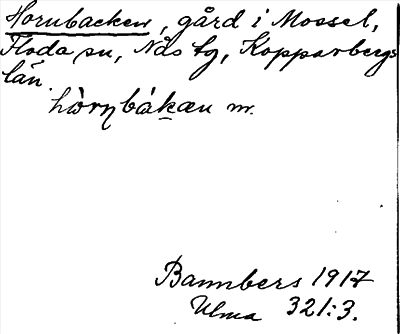 Hornbacken, gård i Mossel,
Floda sn, Nås tg, Kopparbergs
län.
hòrnbákæn m.
Bannbers 1917
Ulma 321:3.